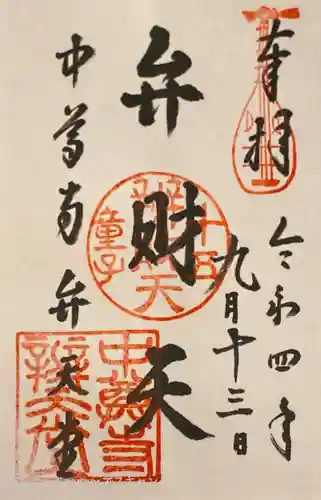 奉拝
令和四年
九月十三日
弁財天
中尊寺弁天堂
弁財天
十五
童子
中尊寺
辨天堂